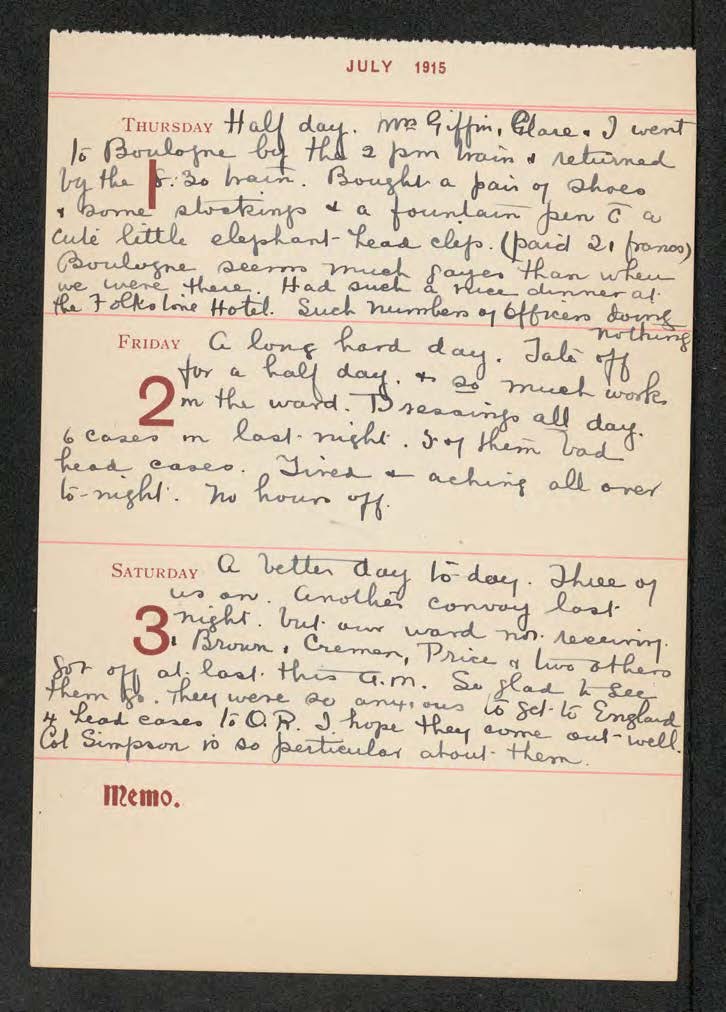 JULY 1915
THURSDAY Half day. Mrs Giffin, Clare & I went
to Boulogne by the 2 pm train & returned
by the 8.30 train. Bought a pair of shoes
1
& some stockings & a fountain pen c̄ a
cute little elephant-head clip. (paid 21 francs)
Boulogne seems much gayer than when
we were there. Had such a nice dinner at
the Folkstone Hotel. Such numbers of Officers doing
nothing
FRIDAY A long hard day. Tate off
for a half day. & so much work
2 in the ward. Dressings all day.
6 cases in last night. 5 of them bad
head cases. Tired & aching all over
to-night. No hours off.
SATURDAY A better day to-day. Three of
us on. Another convoy last
3 night. but our ward not receiving.
Brown, Cremen, Price & two others
got off at last this a.m. So glad to see
them go. They were so anxious to get to England
4 head cases to O.R. I hope they come out well.
Col Simpson is so particular about them.
Memo.